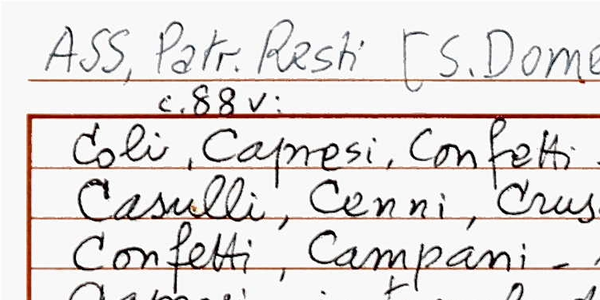 ASS, Patr. Resti [S. Dome
c. 88 v:
Coli, Capresi, Confetti
Casulli, Cenni, Crus
Confetti, Campani -